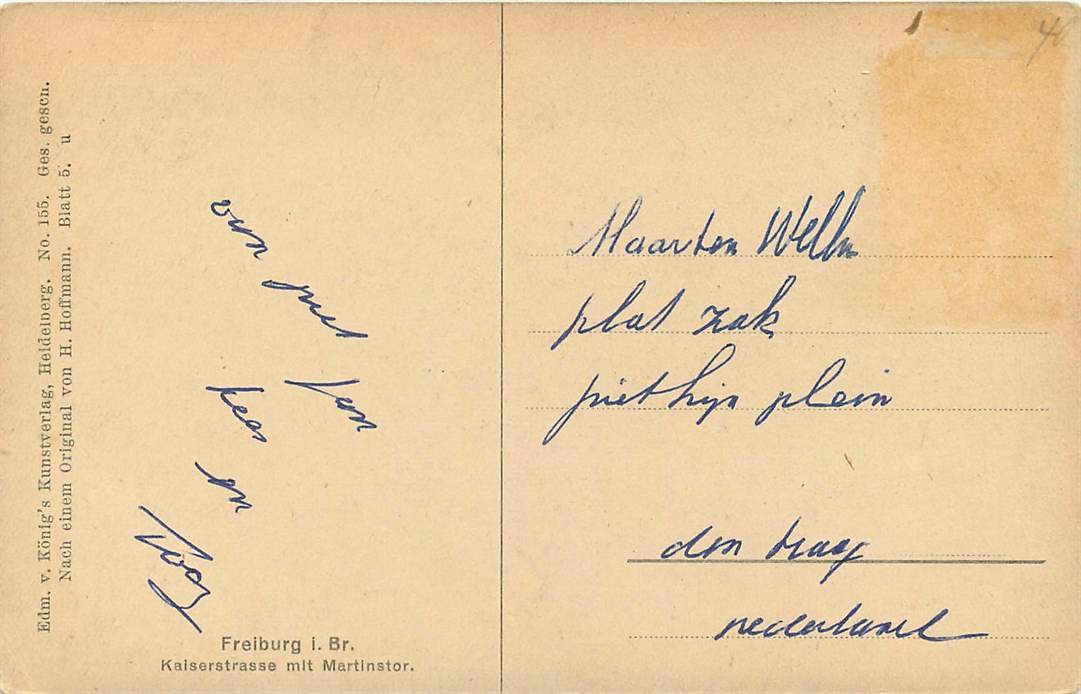 Edm. v. König's Kunstverlag, Heidelberg. No. 155. Ges. gesch.
Nach einem Original von H. Hoffmann. Blatt 5. u
van piet
Jan
kees en
Freiburg i. Br.
Kaiserstrasse mit Martinstor.
40
Maarten
plat zak
piet hijn plein
den haag
nederland